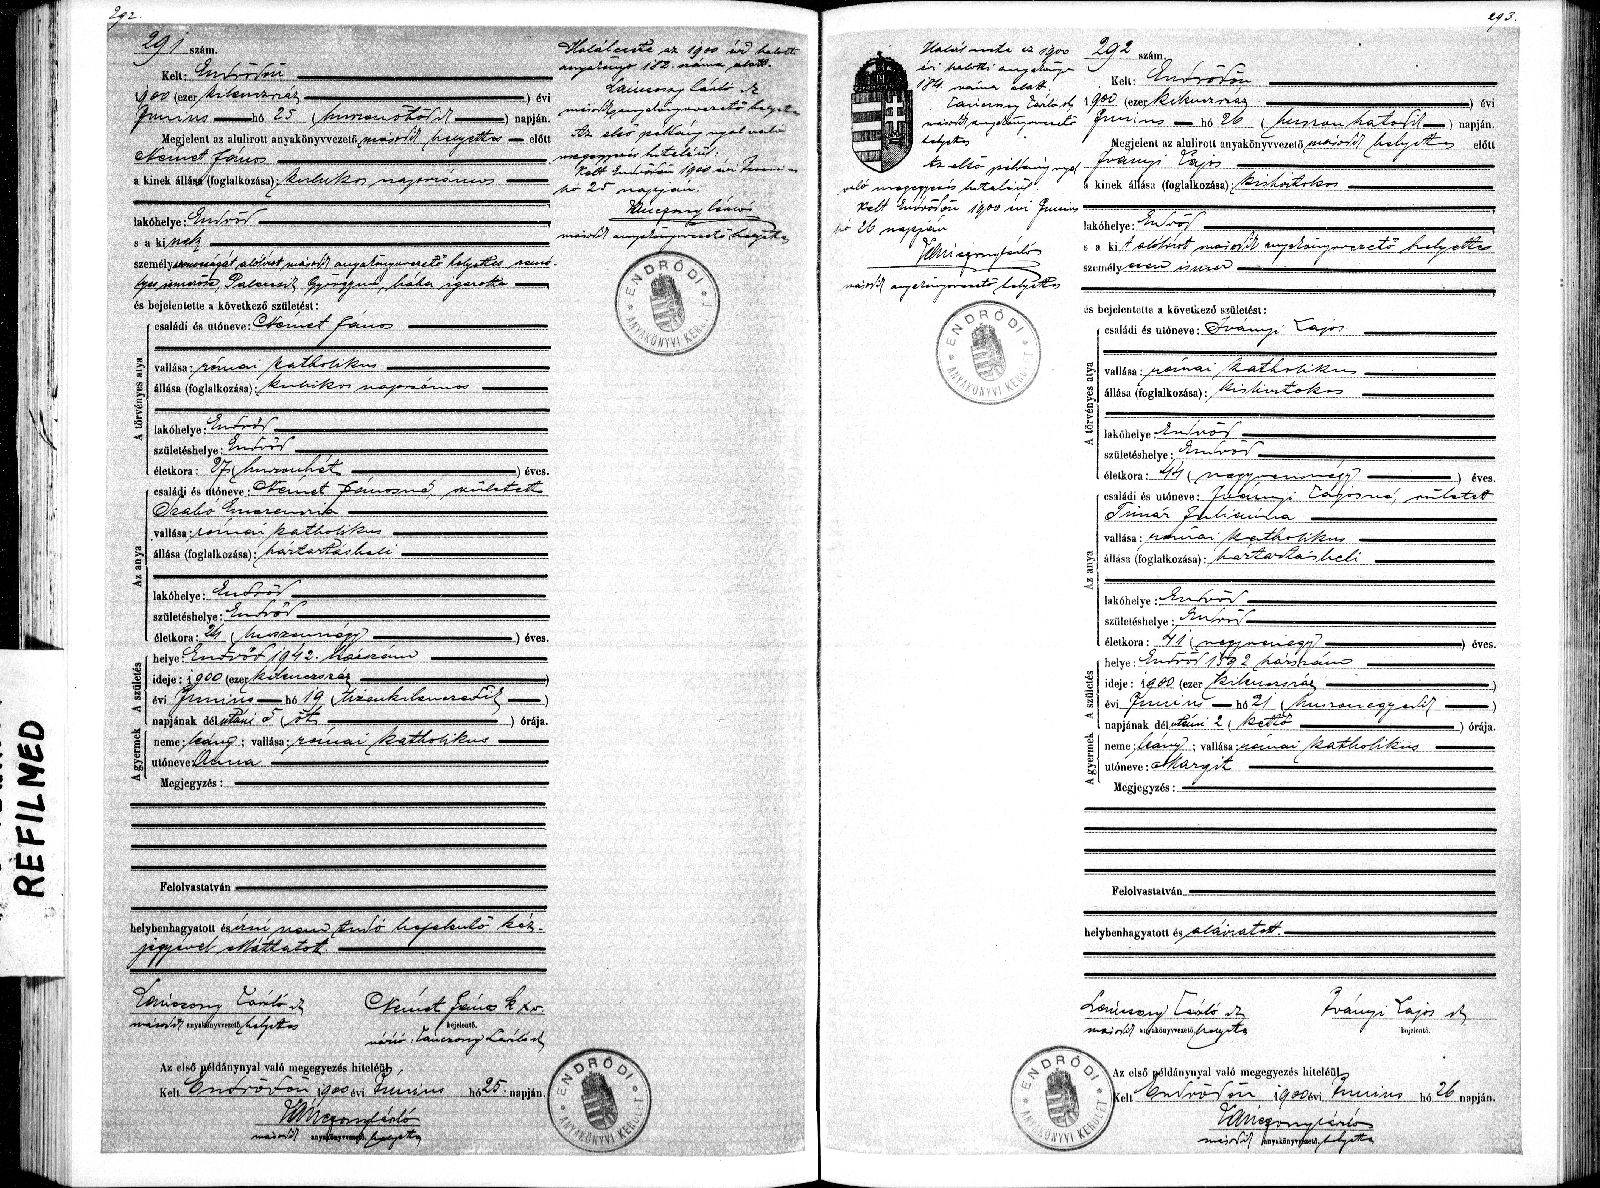 292.
291 szám.
Kelt: Endrődön
1900 (ezer kilenczszáz ) évi
Junius hó 25 (huszonötödik ) napján.
Megjelent az alulirott anyakönyvvezető másodk helyettes előtt
Német János
a kinek állása (foglalkozása): kubikos napszámos
lakóhelye: Endrőd
s a ki nek
személyazonosságát alólirt másodk anyakönyvvezető helyettes szemé-
lyes ismerőse, Györgyné, bába igazolta
és bejelentette a következő születést:
A törvényes atya
családi és utóneve: Német János
vallása: római katholikus
állása (foglalkozása): kubikos napszámos
lakóhelye: Endrőd
születéshelye: Endrőd
életkora: 27 (huszonhét ) éves.
Az anya
családi és utóneve: Német Jánosné, született
Szabó
vallása: római katholikus
állása (foglalkozása): háztartásbeli
lakóhelye: Endrőd
születéshelye: Endrőd
életkora: 24 (huszonnégy ) éves.
A gyermek A születés
helye: Endrőd 1942. házszám
ideje: 1900 (ezer kilenczszáz )
évi Junius hó 19 (tizenkilenczedik )
napjának délutáni 5 (öt ) órája.
neme: leány; vallása: római katholikus
utóneve: Anna
Megjegyzés:
Felolvastatván
helybenhagyatott és írni nem tudó bejelentő kéz-
jegyével elláttatott.
Lánczony László sk Német János k x v.
másodk anyakönyvvezető helyettes bejelentő.
Lánczony László sk
Az első példánynyal való megegyezés hiteléül,
Kelt Endrődön 1900 évi Junius hó 25 napján.
Lánczony László
másodk anyakönyvvezető helyettes
ENDRŐDI
ANYAKÖNYVI KERÜLET
Halálesete az 1900 évi halotti
anyakönyv 182. száma alatt.
Lánczony László sk
másodk anyakönyvvezető helyettes
Az első példánynyal való
megegyezés hiteléül.
Kelt Endrődön 1900 évi Junius
hó 25 napján.
Lánczony László
másodk anyakönyvvezető helyettes
ENDRŐDI
ANYAKÖNYVI KERÜLET
REFILMED
293.
Halálesete az 1900
évi halotti anyakönyv
184. száma alatt.
Lánczony László sk
másodk anyakönyvvezető
helyettes
Az első példánynyal
való megegyezés hiteléül
Kelt Endrődön 1900 évi Junius
hó 26 napján
Lánczony László
másodk anyakönyvvezető helyettes
ENDRŐDI
ANYAKÖNYVI KERÜLET
292 szám.
Kelt: Endrődön
1900 (ezer kilenczszáz ) évi
Junius hó 26 (huszonhatodik ) napján.
Megjelent az alulirott anyakönyvvezető másodk helyettes előtt
Iványi Lajos
a kinek állása (foglalkozása): kisbirtokos
lakóhelye: Endrőd
s a ki t alólirott másodk anyakönyvvezető helyettes
személyesen ismer
és bejelentette a következő születést:
A törvényes atya
családi és utóneve: Iványi Lajos
vallása: római katholikus
állása (foglalkozása): kisbirtokos
lakóhelye: Endrőd
születéshelye: Endrőd
életkora: 44 (negyvennégy ) éves.
Az anya
családi és utóneve: Iványi Lajosné, született
Timár Juliánna
vallása: római katholikus
állása (foglalkozása): háztartásbeli
lakóhelye: Endrőd
születéshelye: Endrőd
életkora: 41 (negyvenegy ) éves.
A gyermek A születés
helye: Endrőd 1592 házszám
ideje: 1900 (ezer kilenczszáz )
évi Junius hó 21 (huszonegyedik )
napjának délutáni 2 (kettő ) órája.
neme: leány; vallása: római katholikus
utóneve: Margit
Megjegyzés:
Felolvastatván
helybenhagyatott és aláiratott.
Lánczony László sk Iványi Lajos sk
másodk anyakönyvvezető helyettes bejelentő.
Az első példánynyal való megegyezés hiteléül,
Kelt Endrődön 1900 évi Junius hó 26 napján.
Lánczony László
másodk anyakönyvvezető helyettes
ENDRŐDI
ANYAKÖNYVI KERÜLET